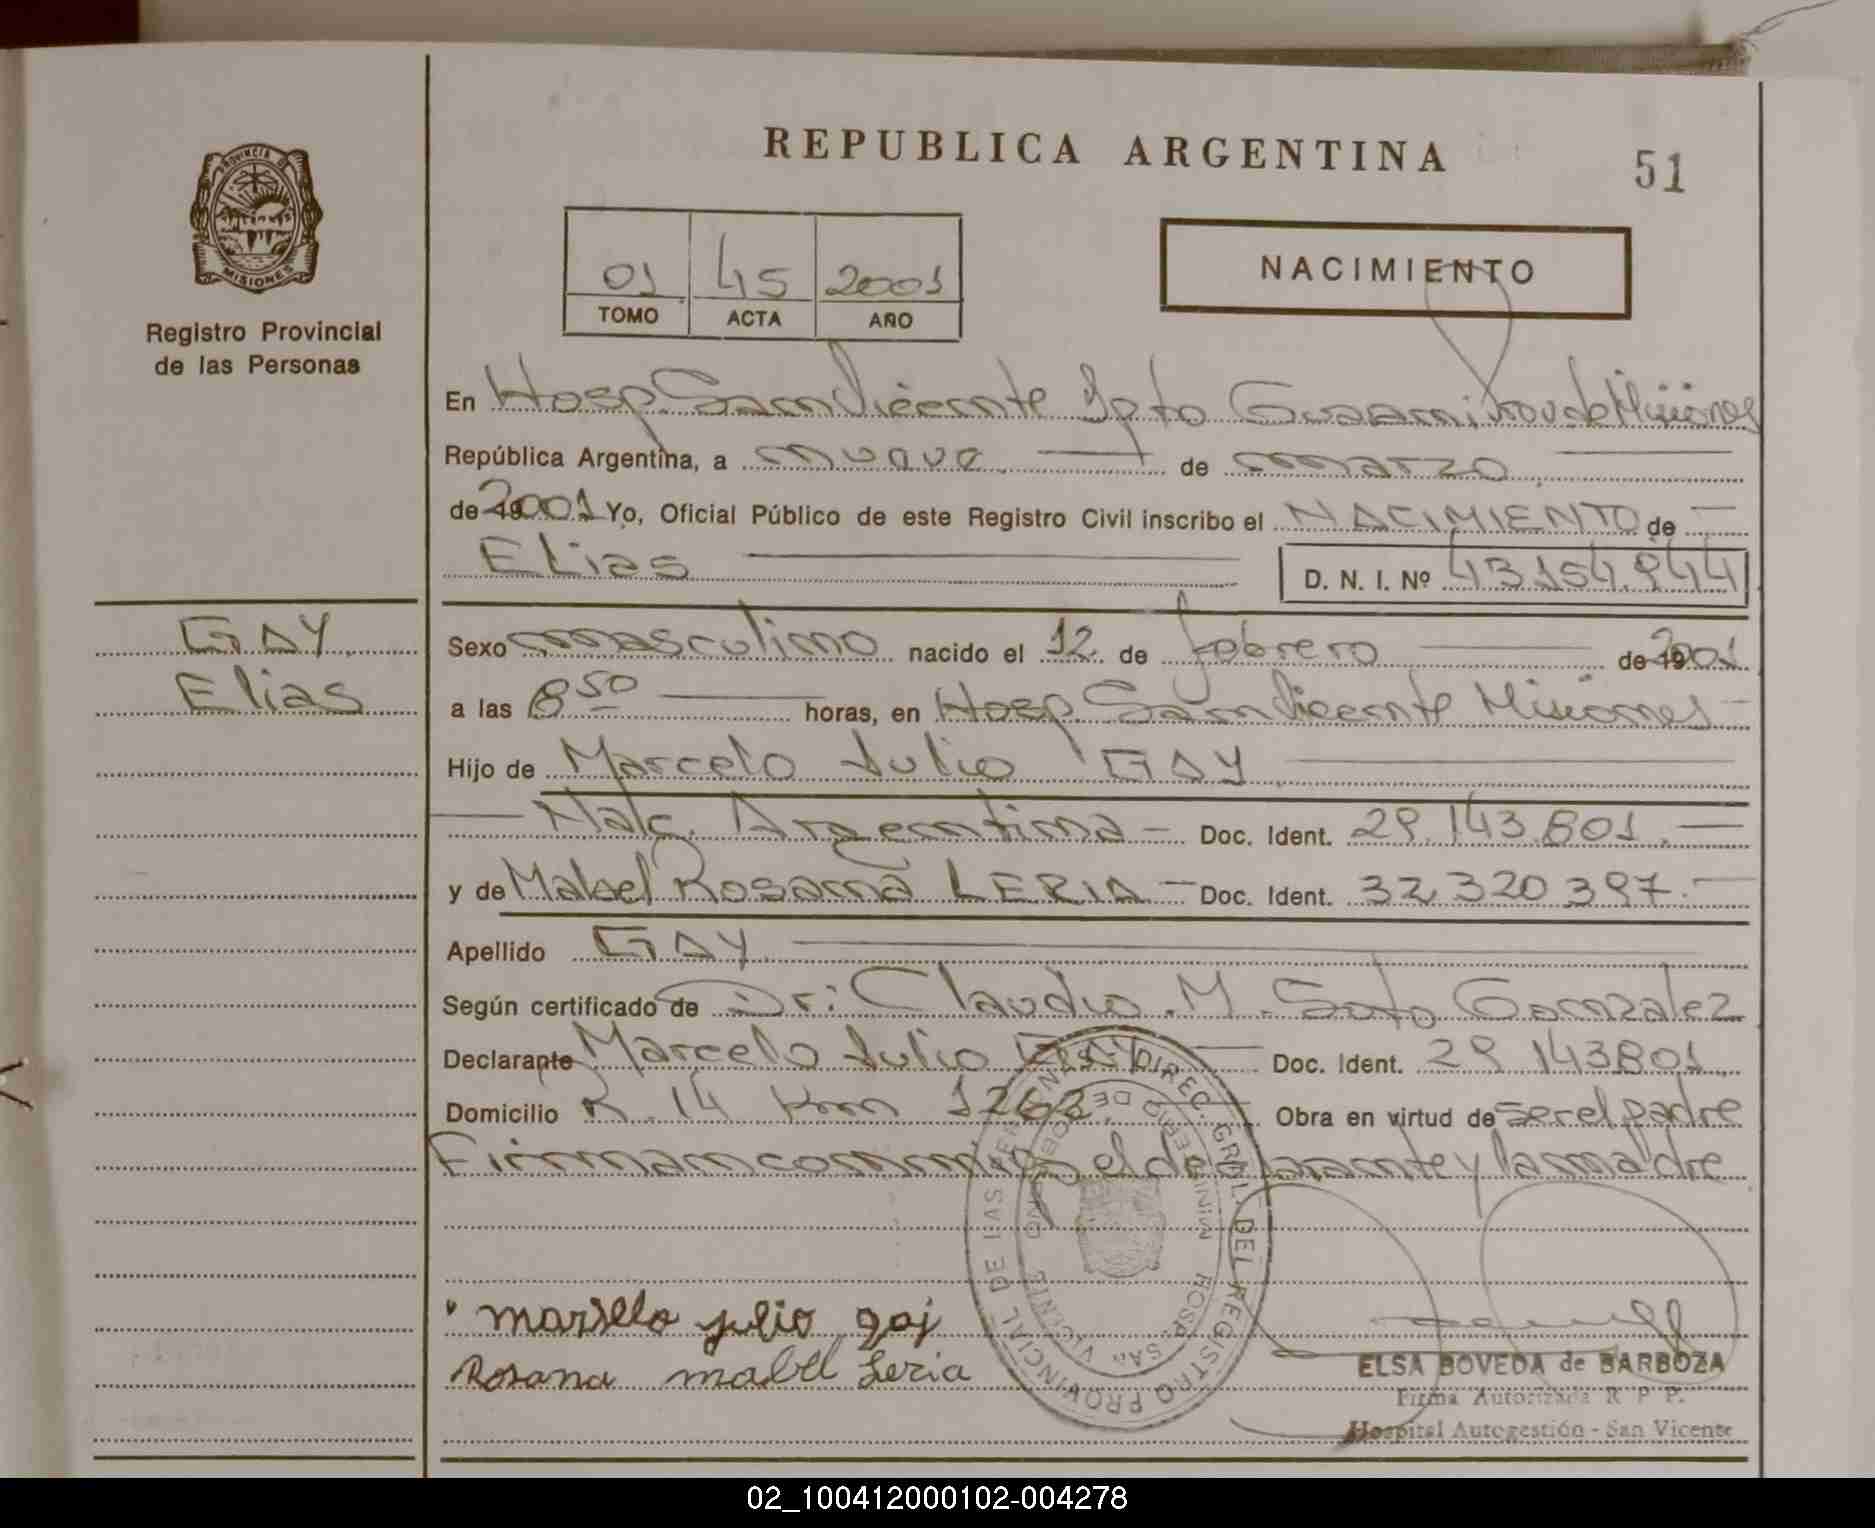 REPUBLICA ARGENTINA
51
PROVINCIA DE
MISIONES
Registro Provincial
de las Personas
01 45 2001
TOMO ACTA AÑO
NACIMIENTO
En Hosp. San Vicente Dpto Guarani Prov de Misiones
República Argentina, a nueve de marzo
de 2001 Yo, Oficial Público de este Registro Civil inscribo el NACIMIENTO de
Elias D. N. I. Nº 43.154.944
GAY
Elias
Sexo masculino nacido el 12 de febrero de 2001
a las 8 50 horas, en Hosp. San Vicente Misiones
Hijo de Marcelo Julio GAY
Nac. Argentina Doc. Ident. 29.143.801.
y de Mabel Rosana LERIA Doc. Ident. 32.320.397.
Apellido GAY
Según certificado de Dr: Claudio. M. Soto Gonzalez
Declarante Marcelo Julio GAY Doc. Ident. 29.143801.
Domicilio R. 14 Km 1262. Obra en virtud de ser el padre
Firman conmigo el declarante y la madre
DIREC. GRAL. DEL REGISTRO PROVINCIAL DE LAS PERSONAS
HOSP. SAN VICENTE
marsello julio gaj
Rosana mabel Leria
ELSA BOVEDA de BARBOZA
Firma Autorizada R. P. P.
Hospital Autogestión - San Vicente
02_100412000102-004278